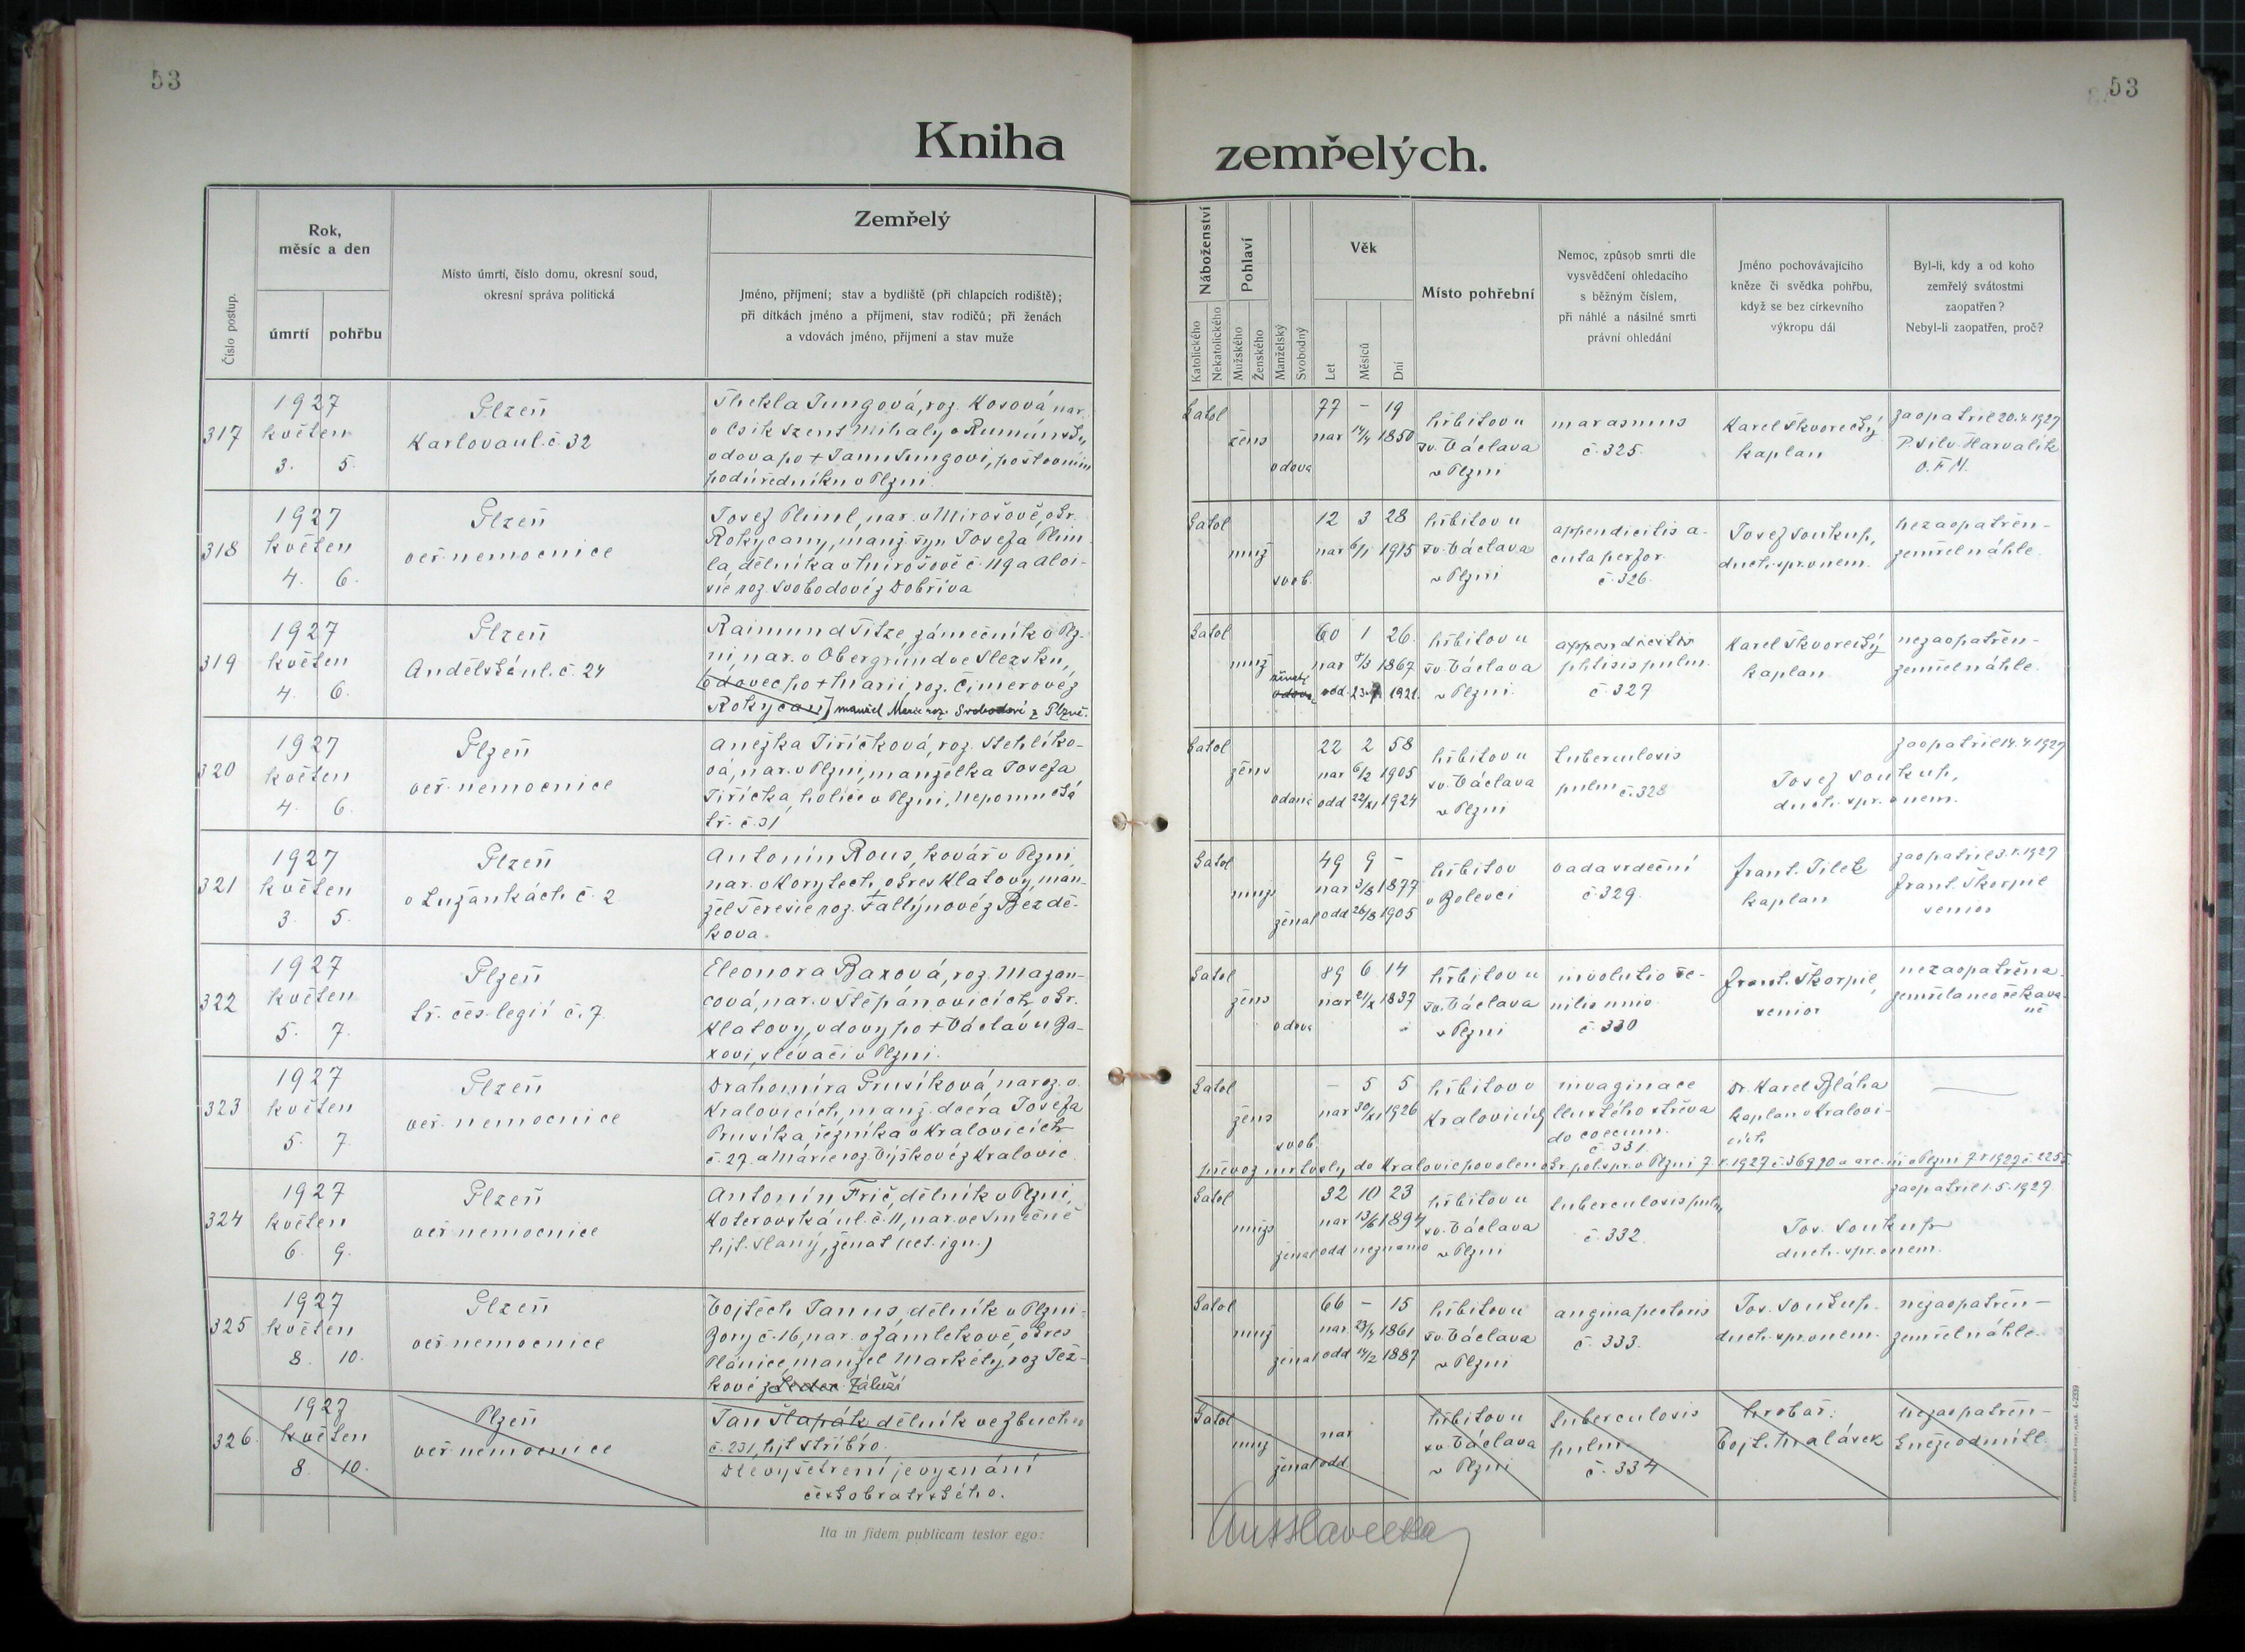 53
53
Kniha
zemřelých.
Číslo postup.
Rok,
měsíc a den
úmrtí
pohřbu
Místo úmrtí, číslo domu, okresní soud,
okresní správa politická
Zemřelý
Jméno, příjmení; stav a bydliště (při chlapcích rodiště);
při dítkách jméno a příjmení, stav rodičů; při ženách
a vdovách jméno, příjmení a stav muže
Náboženství
Katolického
Nekatolického
Pohlaví
Mužského
Ženského
Manželský
Svobodný
Věk
Let
Měsíců
Dní
Místo pohřební
Nemoc, způsob smrti dle
vysvědčení ohledacího
s běžným číslem,
při náhlé a násilné smrti
právní ohledání
Jméno pochovávajícího
kněze či svědka pohřbu,
když se bez církevního
výkropu dál
Byl-li, kdy a od koho
zemřelý svátostmi
zaopatřen?
Nebyl-li zaopatřen, proč?
317
1927
květen
3. 5.
Plzeň
Karlova ul. č 32
Thekla Jungová, roz. Kosová nar.
v Csik Szent Mihaly v Rumunsku,
vdova po + Janu Jungovi, poštovním
podúředníku v Plzni.
katol
žens
vdova
77 – 19
nar 14/4 1850
hřbitov u
sv. Václava
v Plzni
marasmus
č. 325.
Karel Škvorecký
kaplan
zaopatřil 20.4.1927
P. Silv. Harvalík
O.F.M.
318
1927
květen
4. 6.
Plzeň
veř. nemocnice
Josef Pliml, nar. v Mirošově, okr.
Rokycany, manž. syn Josefa Plim-
la, dělníka v Mirošově č. 119 a Aloi-
sie roz. Svobodové z Dobříva
katol
muž
svob.
12 3 28
nar 6/1 1915
hřbitov u
sv. Václava
v Plzni
appendicitis a-
cuta perfor.
č. 326.
Josef Soukup,
duch. spr. v nem.
nezaopatřen-
zemřel náhle.
319
1927
květen
4. 6.
Plzeň
Andělská ul. č. 24
Raimund Titze, zámečník v Plz-
ni, nar. v Obergrund ve Slezsku,
vdovec po + Marii, roz. Čimerové z
Rokycan) manžel Marie roz. Svobodové z Plzně.
katol
muž
ženatý
vdovec
60 1 26.
nar 8/3 1867
odd. 23. 1921.
hřbitov u
sv. Václava
v Plzni.
appendicitis
phtisis pulm.
č. 327
Karel Škvorecký
kaplan.
nezaopatřen-
zemřel náhle.
320
1927
květen
4. 6.
Plzeň
veř. nemocnice
Anežka Jiříčková, roz. Stehlíko-
vá, nar. v Plzni, manželka Josefa
Jiříčka, holiče v Plzni, Nepomucká
tř. č. 31
katol
žens
vdaná
22 2 58
nar 6/2 1905
odd 22/XI 1924
hřbitov u
sv. Václava
v Plzni
tuberculosis
pulm č. 328
zaopatřil 14.4.1927
Josef Soukup,
duch. spr. v nem.
321
1927
květen
3. 5.
Plzeň
v Lužánkách č. 2
Antonín Rous, kovář v Plzni,
nar. v Korytech, okres Klatovy, man-
žel Terezie roz. Faltýnové z Bezdě-
kova.
katol
mužs
ženat
49 9 –
nar 3/8 1877
odd 26/8 1905
hřbitov
v Bolevci
vada srdeční
č. 329.
Frant. Jílek
kaplan
zaopatřil 3.5.1927
Frant. Škorpil
senior
322
1927
květen
5. 7.
Plzeň
tř. čes. legií č. 7
Eleonora Baxová, roz. Mazan-
cová, nar. v Štěpánovicích, okr.
Klatovy, vdovy po + Václavu Ba-
xovi, slévači v Plzni.
katol
žens
vdova
89 6 14
nar 21/X 1837
hřbitov u
sv. Václava
v Plzni
involutio se-
nilis
č. 330
Frant. Škorpil,
senior
nezaopatřena.
zemřela neočekáva-
ně
323
1927
květen
5. 7.
Plzeň
veř. nemocnice
Drahomíra Prusíková, naroz. v
Kralovicích, manž. dcera Josefa
Prusíka, řezníka v Kralovicích
č. 27. a Marie roz. Výškové z Kralovic
katol
žens
svob.
– 5 5
nar 30/XI 1926
hřbitov v
Kralovicích
invaginace
tlustého střeva
do coecum.
č. 331.
Dr. Karel Bláha
kaplan v Kralovi-
cích
převoz mrtvoly do Kralovic povolen okr. pol. spr. v Plzni 7.5.1927 č. 36990 a v Plzni 7.5.1927 č. 2255.
324
1927
květen
6. 9.
Plzeň
veř. nemocnice
Antonín Frič, dělník v Plzni,
Koterovská ul. č. 11, nar. ve Smečně
hjt. Slaný, ženat (cet. ign.)
katol
mužs
ženat
32 10 23
nar 13/6 1894
odd neznámo
hřbitov u
sv. Václava
v Plzni
tuberculosis pulm.
č. 332.
zaopatřil 1.5.1927
Jos. Soukup
duch. spr. v nem.
325
1927
květen
8. 10.
Plzeň
veř. nemocnice
Vojtěch Janus, dělník v Plzni-
Bory č. 16, nar. v Zamlekově, okres
Plánice, manžel Markéty, roz. Jež-
kové z Záluží
katol
muž
ženat
66 – 15
nar. 23/4 1861
odd 14/2 1887
hřbitov u
sv. Václava
v Plzni
angina pectoris
č. 333.
Jos. Soukup.
duch. spr. v nem.
nezaopatřen –
zemřel náhle.
326.
1927
květen
8. 10.
Plzeň
veř. nemocnice
Jan Šlapák, dělník ve Zbuchu
č. 231, hjt. Stříbro.
Dle vyšetření je vyznání
českobratrského.
katol
muž
ženat
nar
odd.
hřbitov u
sv. Václava
v Plzni
tuberculosis
pulm.
č. 334
hrobař:
Vojt. Malásek
nezaopatřen –
kněze odmítl.
Ita in fidem publicam testor ego: